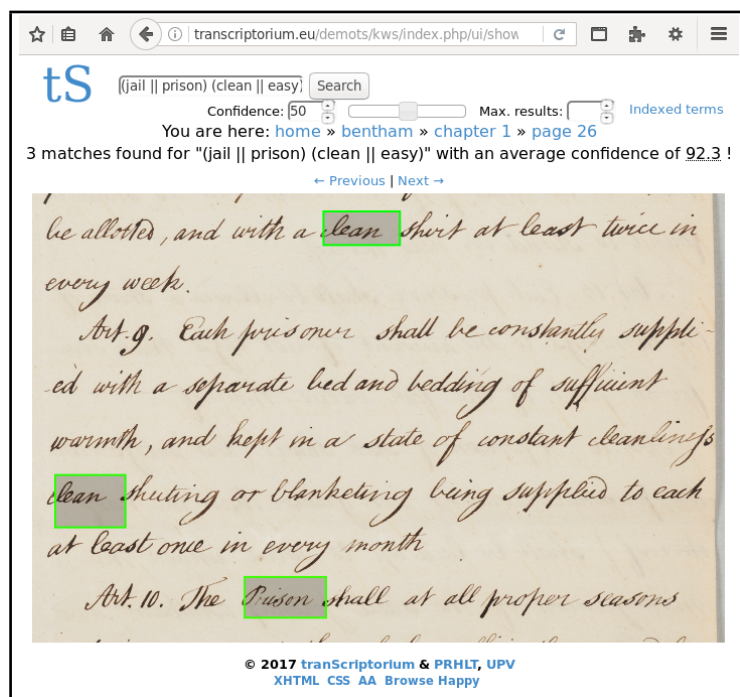 transcriptorium.eu/demots/kws/index.php/ui/show
tS (jail || prison) (clean || easy) Search
Confidence: 50 Max. results: Indexed terms
You are here: home » bentham » chapter 1 » page 26
3 matches found for "(jail || prison) (clean || easy)" with an average confidence of 92.3 !
← Previous | Next →
be allotted, and with a clean shirt at least twice in
every week.
Art. 9. Each prisoner shall be constantly suppli-
ed with a separate bed and bedding of sufficient
warmth, and kept in a state of constant cleanliness
clean sheeting or blanketing being supplied to each
at least once in every month
Art. 10. The Prison shall at all proper seasons
© 2017 tranScriptorium & PRHLT, UPV
XHTML CSS AA Browse Happy